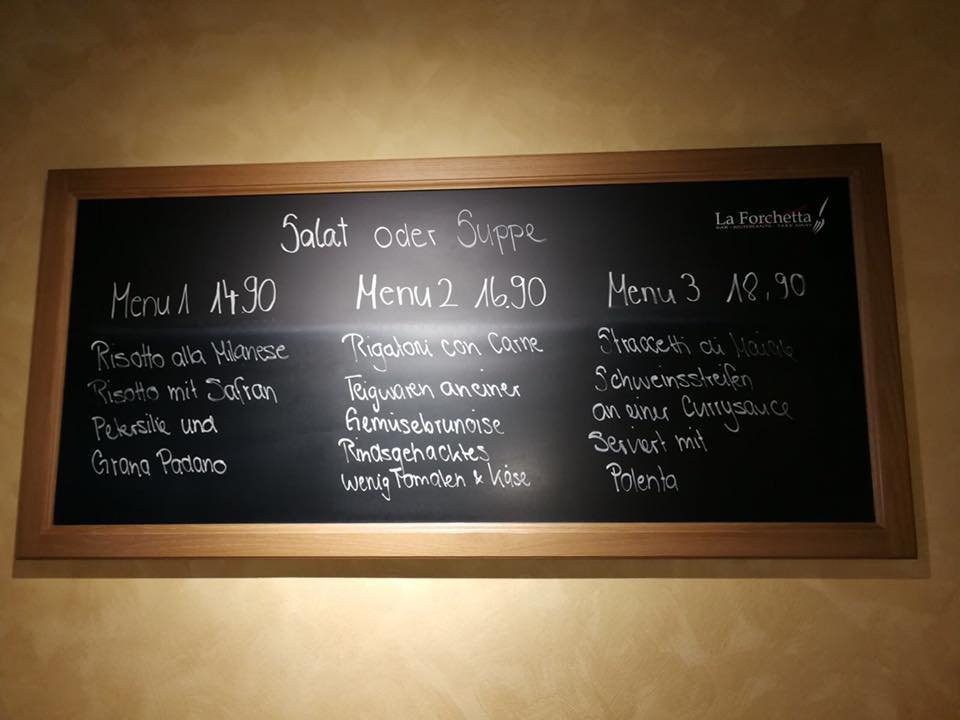 La Forchetta
BAR - RISTORANTE - TAKE AWAY
Salat oder Suppe
Menu 1 14.90
Risotto alla Milanese
Risotto mit Safran
Petersilie und
Grana Padano
Menu 2 16.90
Rigatoni con Carne
Teigwaren an einer
Gemüsebrunoise
Rindsgehacktes
wenig Tomaten & Käse
Menu 3 18,90
Straccetti di Maiale
Schweinsstreifen
an einer Currysauce
Serviert mit
Polenta